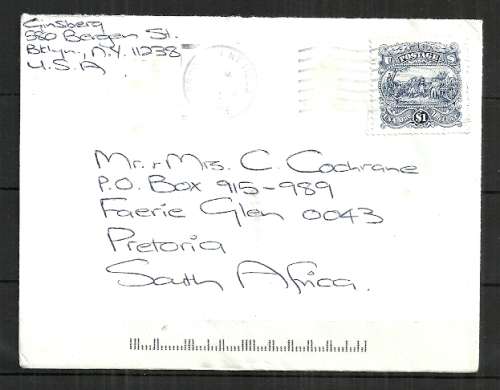 Ginsberg
880 Bergen St.
Bklyn., N.Y. 11238
U.S.A
POSTAGE
$1
Mr. + Mrs. C. Cochrane
P.O. Box 915-989
Faerie Glen 0043
Pretoria
South Africa.